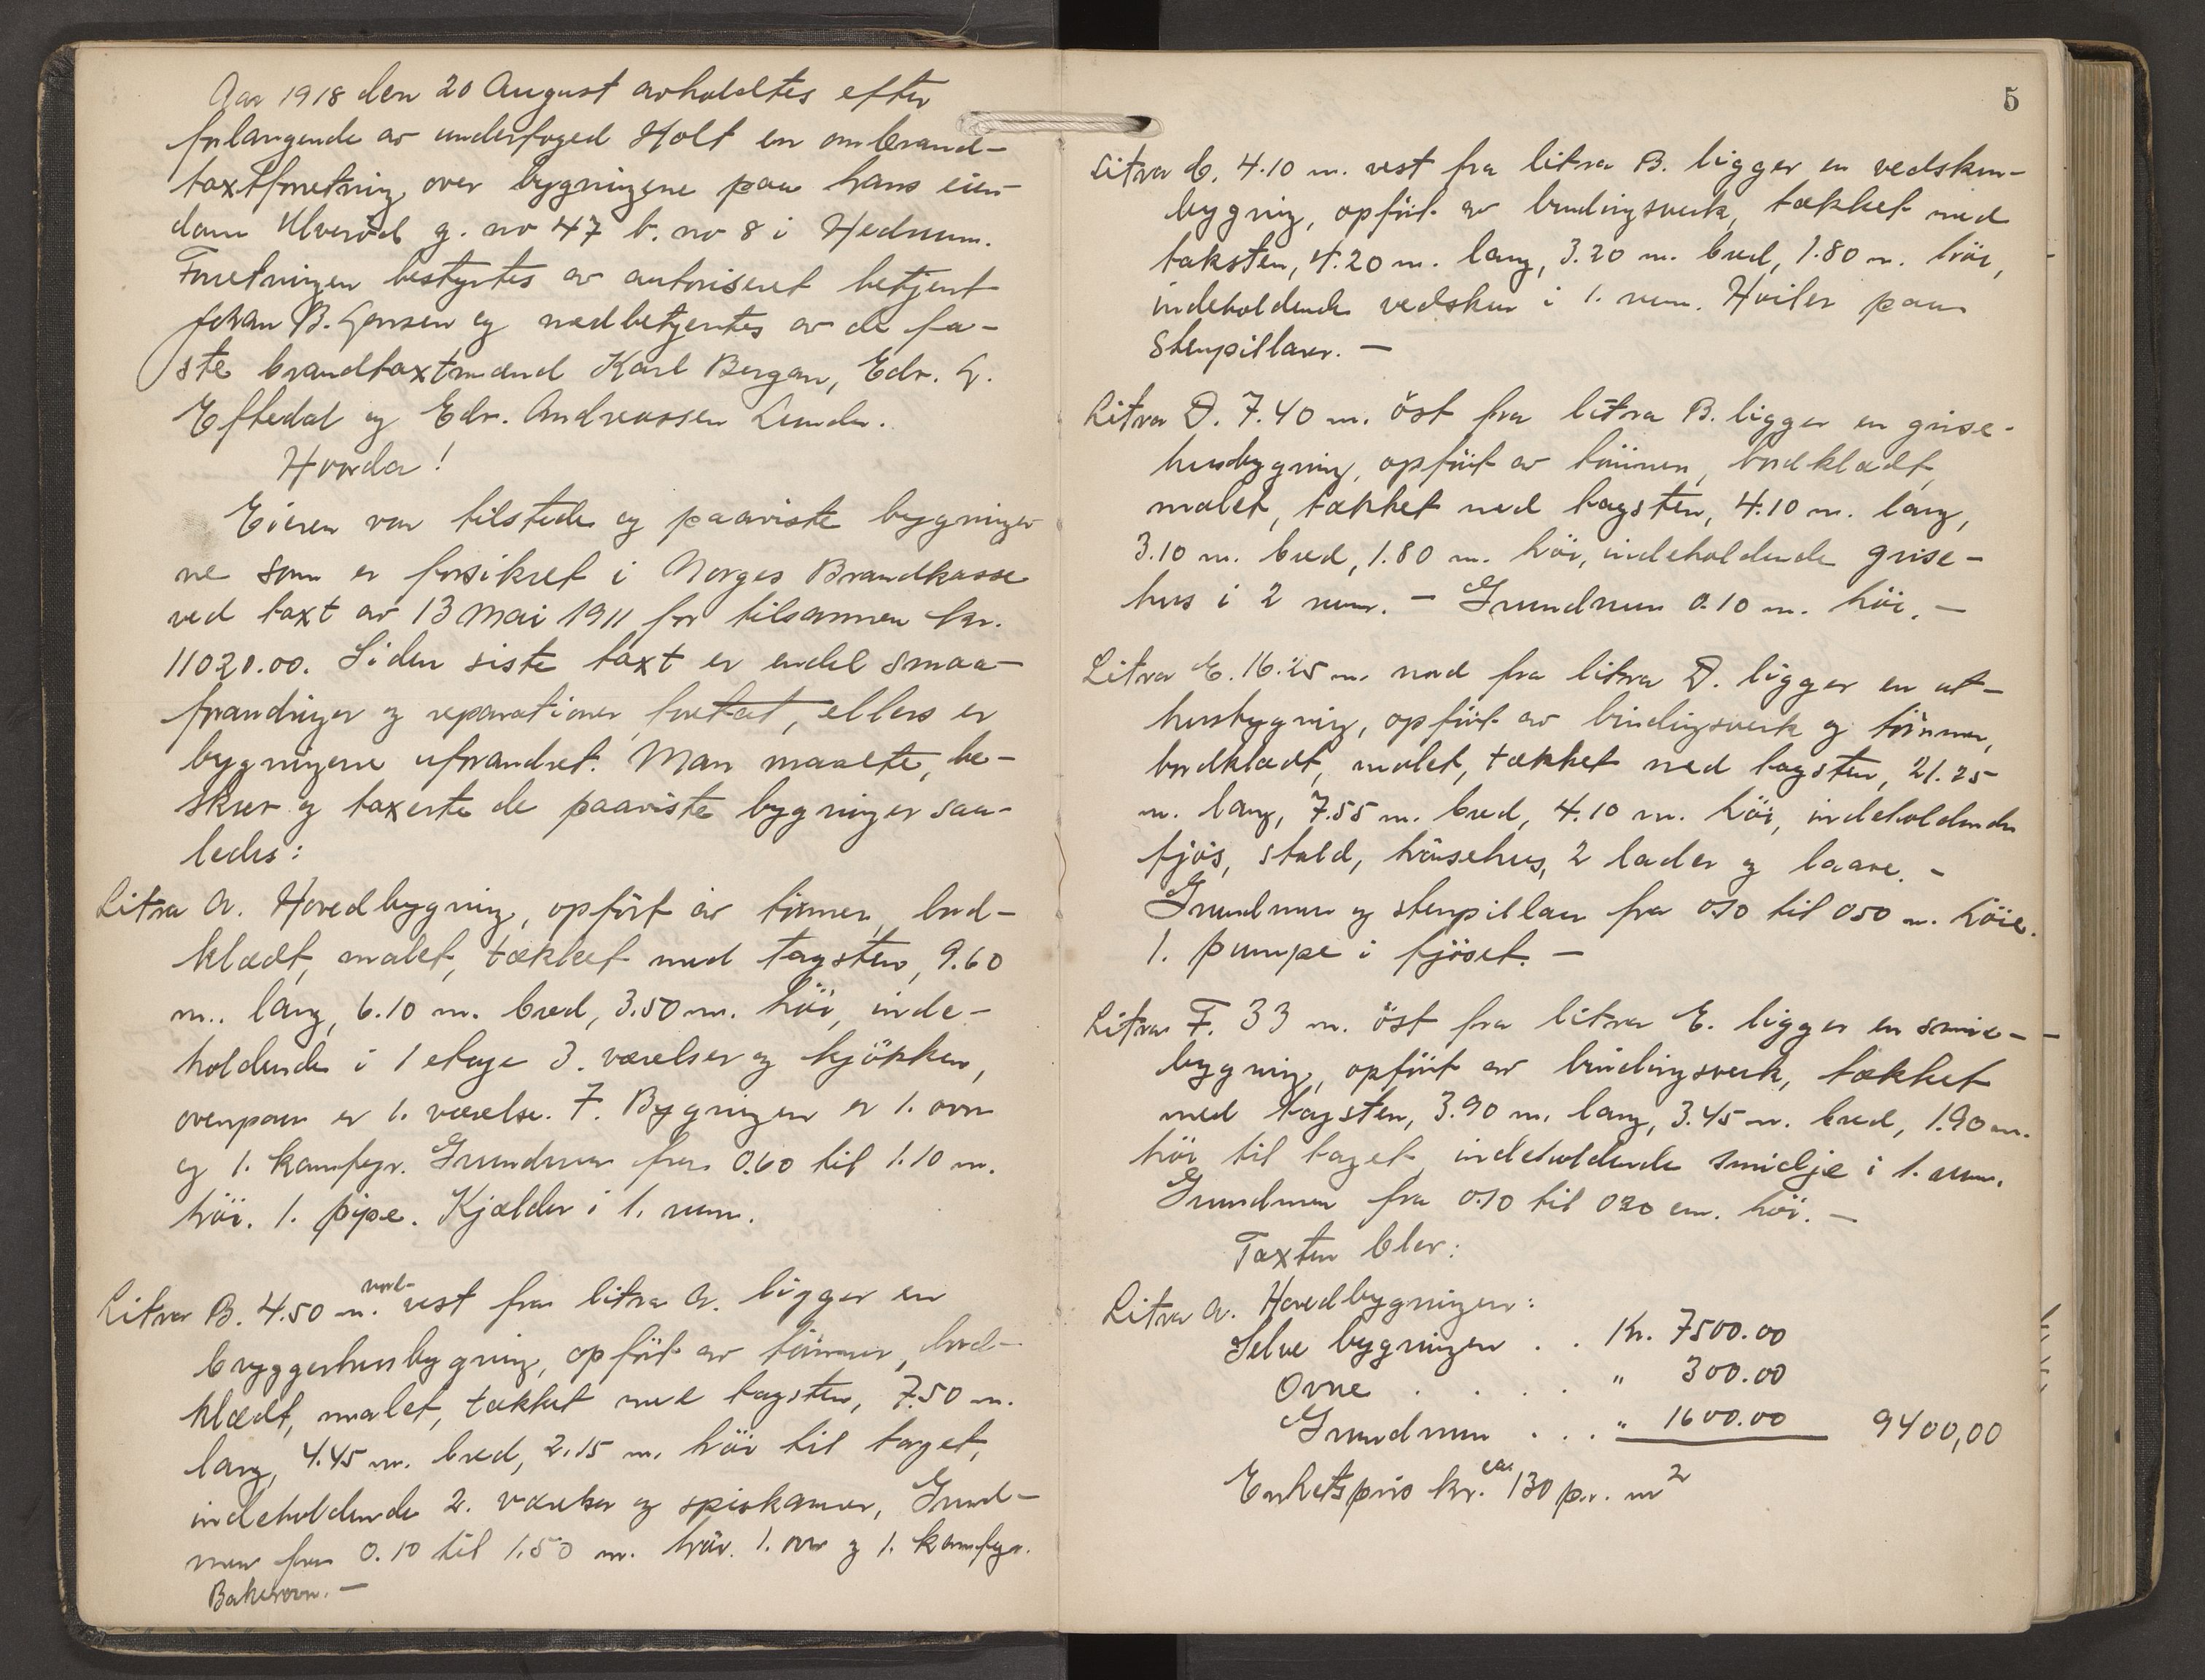 Aar 1918 den 20 August avholdtes efter
forlangende av underfoged Holt en ombrand-
taxtforretning over bygningene paa hans eien-
dom Ulveröd g. no 47 b. no 8 i Hedrum.
Forretningen bestyrtes av autoriseret betjent
Johan B. Jensen og medbetjentes av de fa-
ste brandtaxtmænd Karl Bergan, Edv. G.
Eftedal og Edv. Andreassen Lunde.
Hvorda!
Eieren var tilstede og paaviste bygninger
ne som er forsikret i Norges Brandkasse
ved taxt av 13 Mai 1911 for tilsammen kr.
11020.00. Siden siste taxt er endel smaa-
forandringer og reparationer foretat, ellers er
bygningene uforandret. Man maalte, be-
skrev og taxerte de paaviste bygninger saa-
ledes:
Litra A. Hovedbygning, opfört av tömmer, bord-
klædt, malet, tækket med tagsten, 9.60
m. lang, 6.10 m. bred, 3.50 m. höi, inde-
holdende i 1 etage 3. værelser og kjökken,
ovenpaa er 1. værelse. F. Bygningen er 1. ovn
og 1. komfyr. Grundmur fra 0.60 til 1.10 m.
höi. 1. pipe. Kjælder i 1. rum.
Litra B. 4.50 m. nord-vest fra litra A. ligger en
bryggerhusbygning, opfört av tömmer, bord-
klædt, malet, tækket med tagsten, 7.50 m.
lang, 4.45 m. bred, 2.15 m. höi til taget,
indeholdende 2. værelser og spiskamer, Grund-
mur fra 0.10 til 1.50 m. höi. 1. ovn og 1. komfyr.
Bakerovn. —
5
Litra C. 4.10 m. vest fra litra B. ligger en vedskur-
bygning, opfört av bindingsverk, tækket med
taksten, 4.20 m. lang, 3.20 m. bred, 1.80 m. höi,
indeholdende vedskur i 1. rum. Hviler paa
Stenpillarer. —
Litra D. 7.40 m. öst fra litra B. ligger en grise-
husbygning, opfört av tömmer, bordklædt,
malet, tækket med tagsten, 4.10 m. lang,
3.10 m. bred, 1.80 m. höi, indeholdende grise-
hus i 2 rum. — Grundmur 0.10 m. höi. —
Litra E. 16.25 m. nord fra litra D. ligger en ut-
husbygning, opfört av bindingsverk og tömmer,
bordklædt, malet, tækket med tagsten, 21.25
m. lang, 7.55 m. bred, 4.10 m. höi, indeholdende
fjös, stald, hönsehus, 2 lader og laave. -
Grundmur og stenpillarer fra 0.10 til 0.50 m. höie.
1. pumpe i fjöset. —
Litra F. 33 m. öst fra litra E. ligger en smie-
bygning, opfört av bindingsverk, tækket
med tagsten, 3.90 m. lang, 3.45 m. bred, 1.90 m.
höi til taget, indeholdende smidje i 1. rum.
Grundmur fra 0.10 til 0.20 cm. höi. —
Taxten blev:
Litra A. Hovedbygningen:
Selve bygningen . . Kr. 7500.00
Ovne . . . . " 300.00
Grundmur . . . " 1600.00 9400,00
Enhetspris kr. ca. 130 p.r. m2